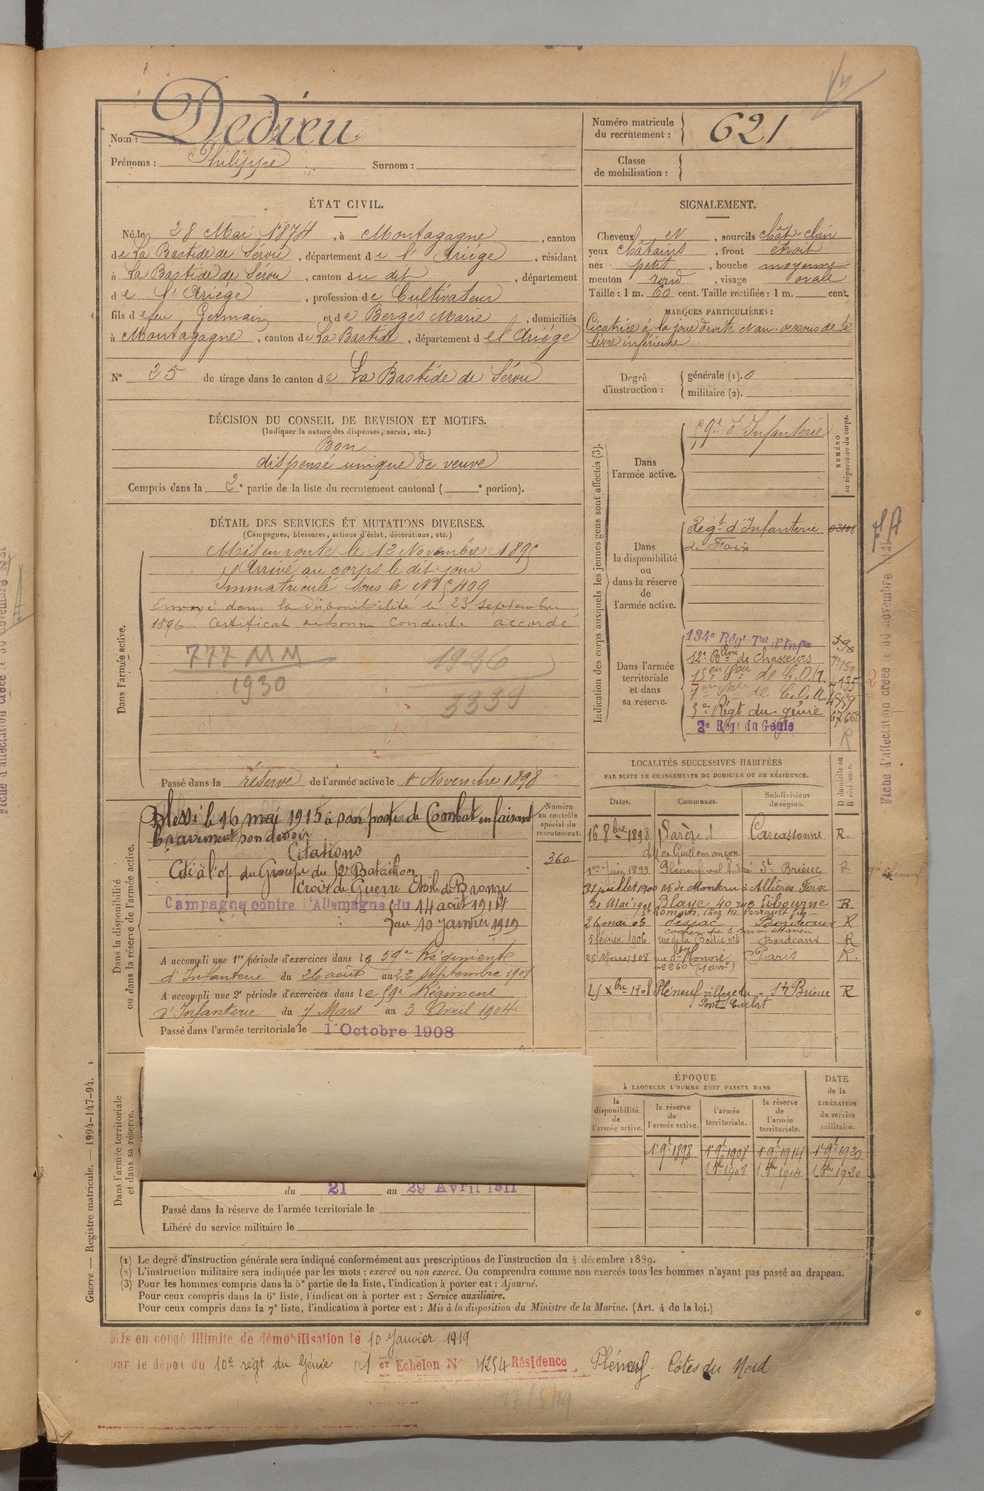 Nom : Dedieu
Prénoms : Philippe Surnom :
Numéro matricule du recrutement : 621
Classe de mobilisation :
ÉTAT CIVIL.
Né le 28 Mai 1874, à Montagagne, canton
de La Bastide de Sérou, département de l'Ariège, résidant
à La Bastide de Sérou, canton du dit, département
de l'Ariège, profession de Cultivateur
fils de feu Germain et de Bergès Marie, domiciliés
à Montagagne, canton de La Bastide, département de l'Ariège
N° 25 de tirage dans le canton de La Bastide de Sérou
SIGNALEMENT.
Cheveux et, sourcils chât. clair
yeux châtains, front étroit
nez petit, bouche moyenne
menton rond, visage ovale
Taille : 1 m. 60 cent. Taille rectifiée : 1 m. cent.
MARQUES PARTICULIÈRES :
Cicatrice à la joue droite et au-dessous de la
lèvre inférieure
Degré d'instruction : générale (1). 0
militaire (2).
DÉCISION DU CONSEIL DE REVISION ET MOTIFS.
(Indiquer la nature des dispenses, sursis, etc.)
Bon
dispensé unique de veuve
Compris dans la 2e partie de la liste du recrutement cantonal ( e portion).
DÉTAIL DES SERVICES ET MUTATIONS DIVERSES.
(Campagnes, blessures, actions d'éclat, décorations, etc.)
Dans l'armée active.
Mis en route le 13 Novembre 1895
Arrivé au corps le dit jour
Immatriculé sous le N°
Envoyé dans la disponibilité le 23 septembre
1896. Certificat de bonne conduite accordé
777 MM
1930
1926
3339
Passé dans la réserve de l'armée active le 1 Novembre 1898
Indication des corps auxquels les jeunes gens sont affectés (3).
NUMÉRO au répertoire du corps.
Dans l'armée active.
59e d'Infanterie
Dans la disponibilité ou dans la réserve de l'armée active.
Régt d'Infanterie
de Foix
03108
Dans l'armée territoriale et dans sa réserve.
134e Régt Tal d'Infie
12e Bon de Chasseurs
15e Son de C.O.A.
7e Son de C.O.A
3e Régt du génie
2e Régt du Génie
LOCALITÉS SUCCESSIVES HABITÉES
PAR SUITE DE CHANGEMENTS DE DOMICILE OU DE RÉSIDENCE.
Dates. Communes. Subdivisions de région. D domicile ou R résidence.
16 8bre 1898 Carcassonne R.
1er Juin 1899 Pléneuf St Brieuc R
31 juillet 1900 Foix
Blaye, 40 rue Libourne R.
26 mai 05 Bordeaux R
5 février 1906 Bordeaux R
25 Mars 1908 rue St Honoré Paris R.
21 Xbre 1908 Pléneuf village du St Brieuc R
Dans la disponibilité ou dans la réserve de l'armée active.
Numéro au contrôle spécial du recrutement.
360
Blessé le 16 mai 1915 à son poste de Combat en faisant
bravement son devoir
Citations
Cité à l'o/ du Groupe du 12e Bataillon
Croix de Guerre Etoile de Bronze
Campagne contre l'Allemagne du 14 août 1914
au 10 janvier 1919
A accompli une 1re période d'exercices dans le 59e Régiment
d'Infanterie du 26 août au 22 septembre 1901
A accompli une 2e période d'exercices dans le 59e Régiment
d'Infanterie du 7 Mars au 3 Avril 1904
Passé dans l'armée territoriale le 1 Octobre 1908
Dans l'armée territoriale et dans sa réserve.
du 21 au 29 Avril 1911
Passé dans la réserve de l'armée territoriale le
Libéré du service militaire le
ÉPOQUE
À LAQUELLE L'HOMME DOIT PASSER DANS
la disponibilité de l'armée active. la réserve de l'armée active. l'armée territoriale. la réserve de l'armée territoriale.
DATE de la LIBÉRATION du service militaire.
1 9b 1898 1 9b 1908 1 9b 1914 1 9b 1920
1 8bre 1908 1 8bre 1914 1 8bre 1920
(1) Le degré d'instruction générale sera indiqué conformément aux prescriptions de l'instruction du 4 décembre 1889.
(2) L'instruction militaire sera indiquée par les mots : exercé ou non exercé. On comprendra comme non exercés tous les hommes n'ayant pas passé au drapeau.
(3) Pour les hommes compris dans la 5e partie de la liste, l'indication à porter est : Ajourné.
Pour ceux compris dans la 6e liste, l'indication à porter est : Service auxiliaire.
Pour ceux compris dans la 7e liste, l'indication à porter est : Mis à la disposition du Ministre de la Marine. (Art. 4 de la loi.)
Guerre — Registre matricule. — 1994-147-94.
Mis en congé illimité de démobilisation le 10 Janvier 1919
par le dépôt du 10e régt du Génie 1er Echelon N° 1254 Résidence Pléneuf Côtes du Nord